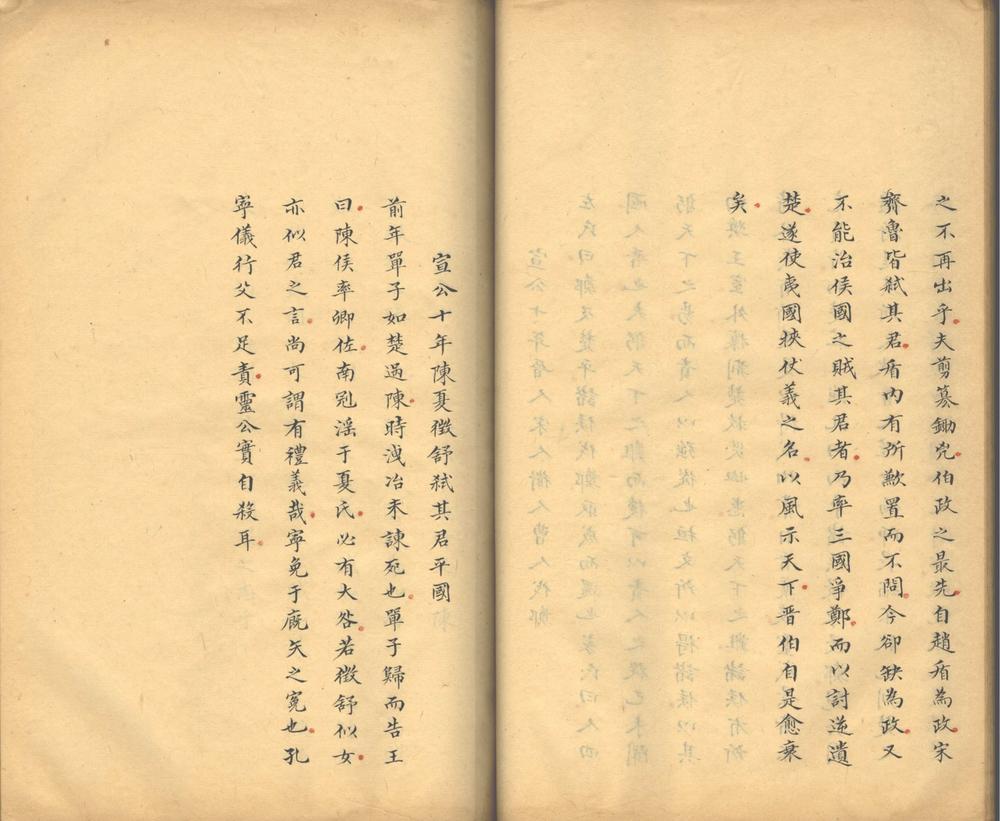 之不再出乎夫剪篡鋤兇伯政之最先自趙盾為政宋
齊魯皆弒其君盾內有所歉置而不問今卻缺為政又
不能治侯國之賊其君者乃率三國爭鄭而以討逆遺
楚遂使夷國挾仗義之名以風示天下晉伯自是愈衰
矣
宣公十年陳夏徵舒弒其君平國
前年單子如楚過陳時洩冶未諫死也單子歸而告王
曰陳侯率卿佐南冠淫于夏氏必有大咎若徵舒似女
亦似君之言尚可謂有禮義哉寧免于廐矢之寃也孔
寧儀行父不足責靈公實自殺耳